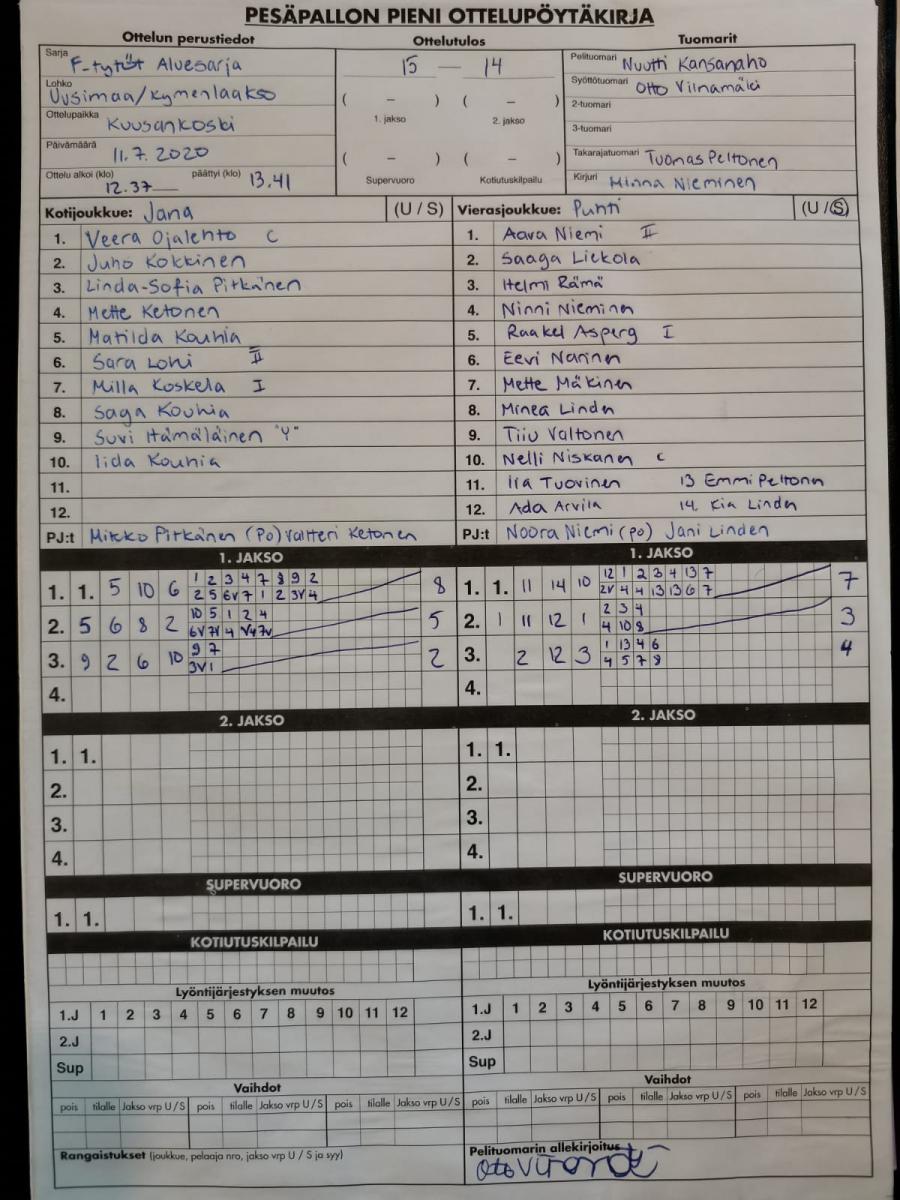 PESÄPALLON PIENI OTTELUPÖYTÄKIRJA
Ottelun perustiedot
Ottelutulos
Tuomarit
Sarja F-tytöt Aluesarja
Lohko Uusimaa/Kymenlaakso
Ottelupaikka Kuusankoski
Päivämäärä 11.7.2020
Ottelu alkoi (klo) 12.37 päättyi (klo) 13.41
15 — 14
( – ) ( – )
1. jakso 2. jakso
( – ) ( – )
Supervuoro Kotiutuskilpailu
Pelituomari Nuutti Kansanaho
Syöttötuomari Otto Viinamäki
2-tuomari
3-tuomari
Takarajatuomari Tuomas Peltonen
Kirjuri Minna Nieminen
Kotijoukkue: Jana (U / S)
1. Veera Ojalehto C
2. Juho Kokkinen
3. Linda-Sofia Pitkänen
4. Mette Ketonen
5. Matilda Kouhia
6. Sara Lohi II
7. Milla Koskela I
8. Saga Kouhia
9. Suvi Hämäläinen "Y"
10. Iida Kouhia
11.
12.
PJ:t Mikko Pitkänen (Po) Valtteri Ketonen
Vierasjoukkue: Puhti (U / S)
1. Aava Niemi II
2. Saaga Liekola
3. Helmi Rämä
4. Ninni Nieminen
5. Raakel Asperg I
6. Eevi Narinen
7. Mette Mäkinen
8. Minea Linden
9. Tiiu Valtonen
10. Nelli Niskanen C
11. Ira Tuovinen 13 Emmi Peltonen
12. Ada Arvila 14. Kia Linden
PJ:t Noora Niemi (po) Jani Linden
1. JAKSO
1. 1. 5 10 6 1 2 3 4 7 8 9 2 8
2 5 6V 7 1 2 3V 4
2. 5 6 8 2 10 5 1 2 4 5
6V 7V 4 V4 7V
3. 9 2 6 10 9 7 2
3V 1
4.
1. JAKSO
1. 1. 11 14 10 12 1 2 3 4 13 7 7
2V 4 4 13 13 6 7
2. 1 11 12 1 2 3 4 3
4 10 8
3. 2 12 3 1 13 4 6 4
4 5 7 8
4.
2. JAKSO
1. 1.
2.
3.
4.
2. JAKSO
1. 1.
2.
3.
4.
SUPERVUORO
1. 1.
SUPERVUORO
1. 1.
KOTIUTUSKILPAILU
KOTIUTUSKILPAILU
Lyöntijärjestyksen muutos
1.J 1 2 3 4 5 6 7 8 9 10 11 12
2.J
Sup
Lyöntijärjestyksen muutos
1.J 1 2 3 4 5 6 7 8 9 10 11 12
2.J
Sup
Vaihdot
pois tilalle Jakso vrp U / S pois tilalle Jakso vrp U / S pois tilalle Jakso vrp U / S
Vaihdot
pois tilalle Jakso vrp U / S pois tilalle Jakso vrp U / S pois tilalle Jakso vrp U / S
Rangaistukset (joukkue, pelaaja nro, jakso vrp U / S ja syy)
Pelituomarin allekirjoitus
Otto